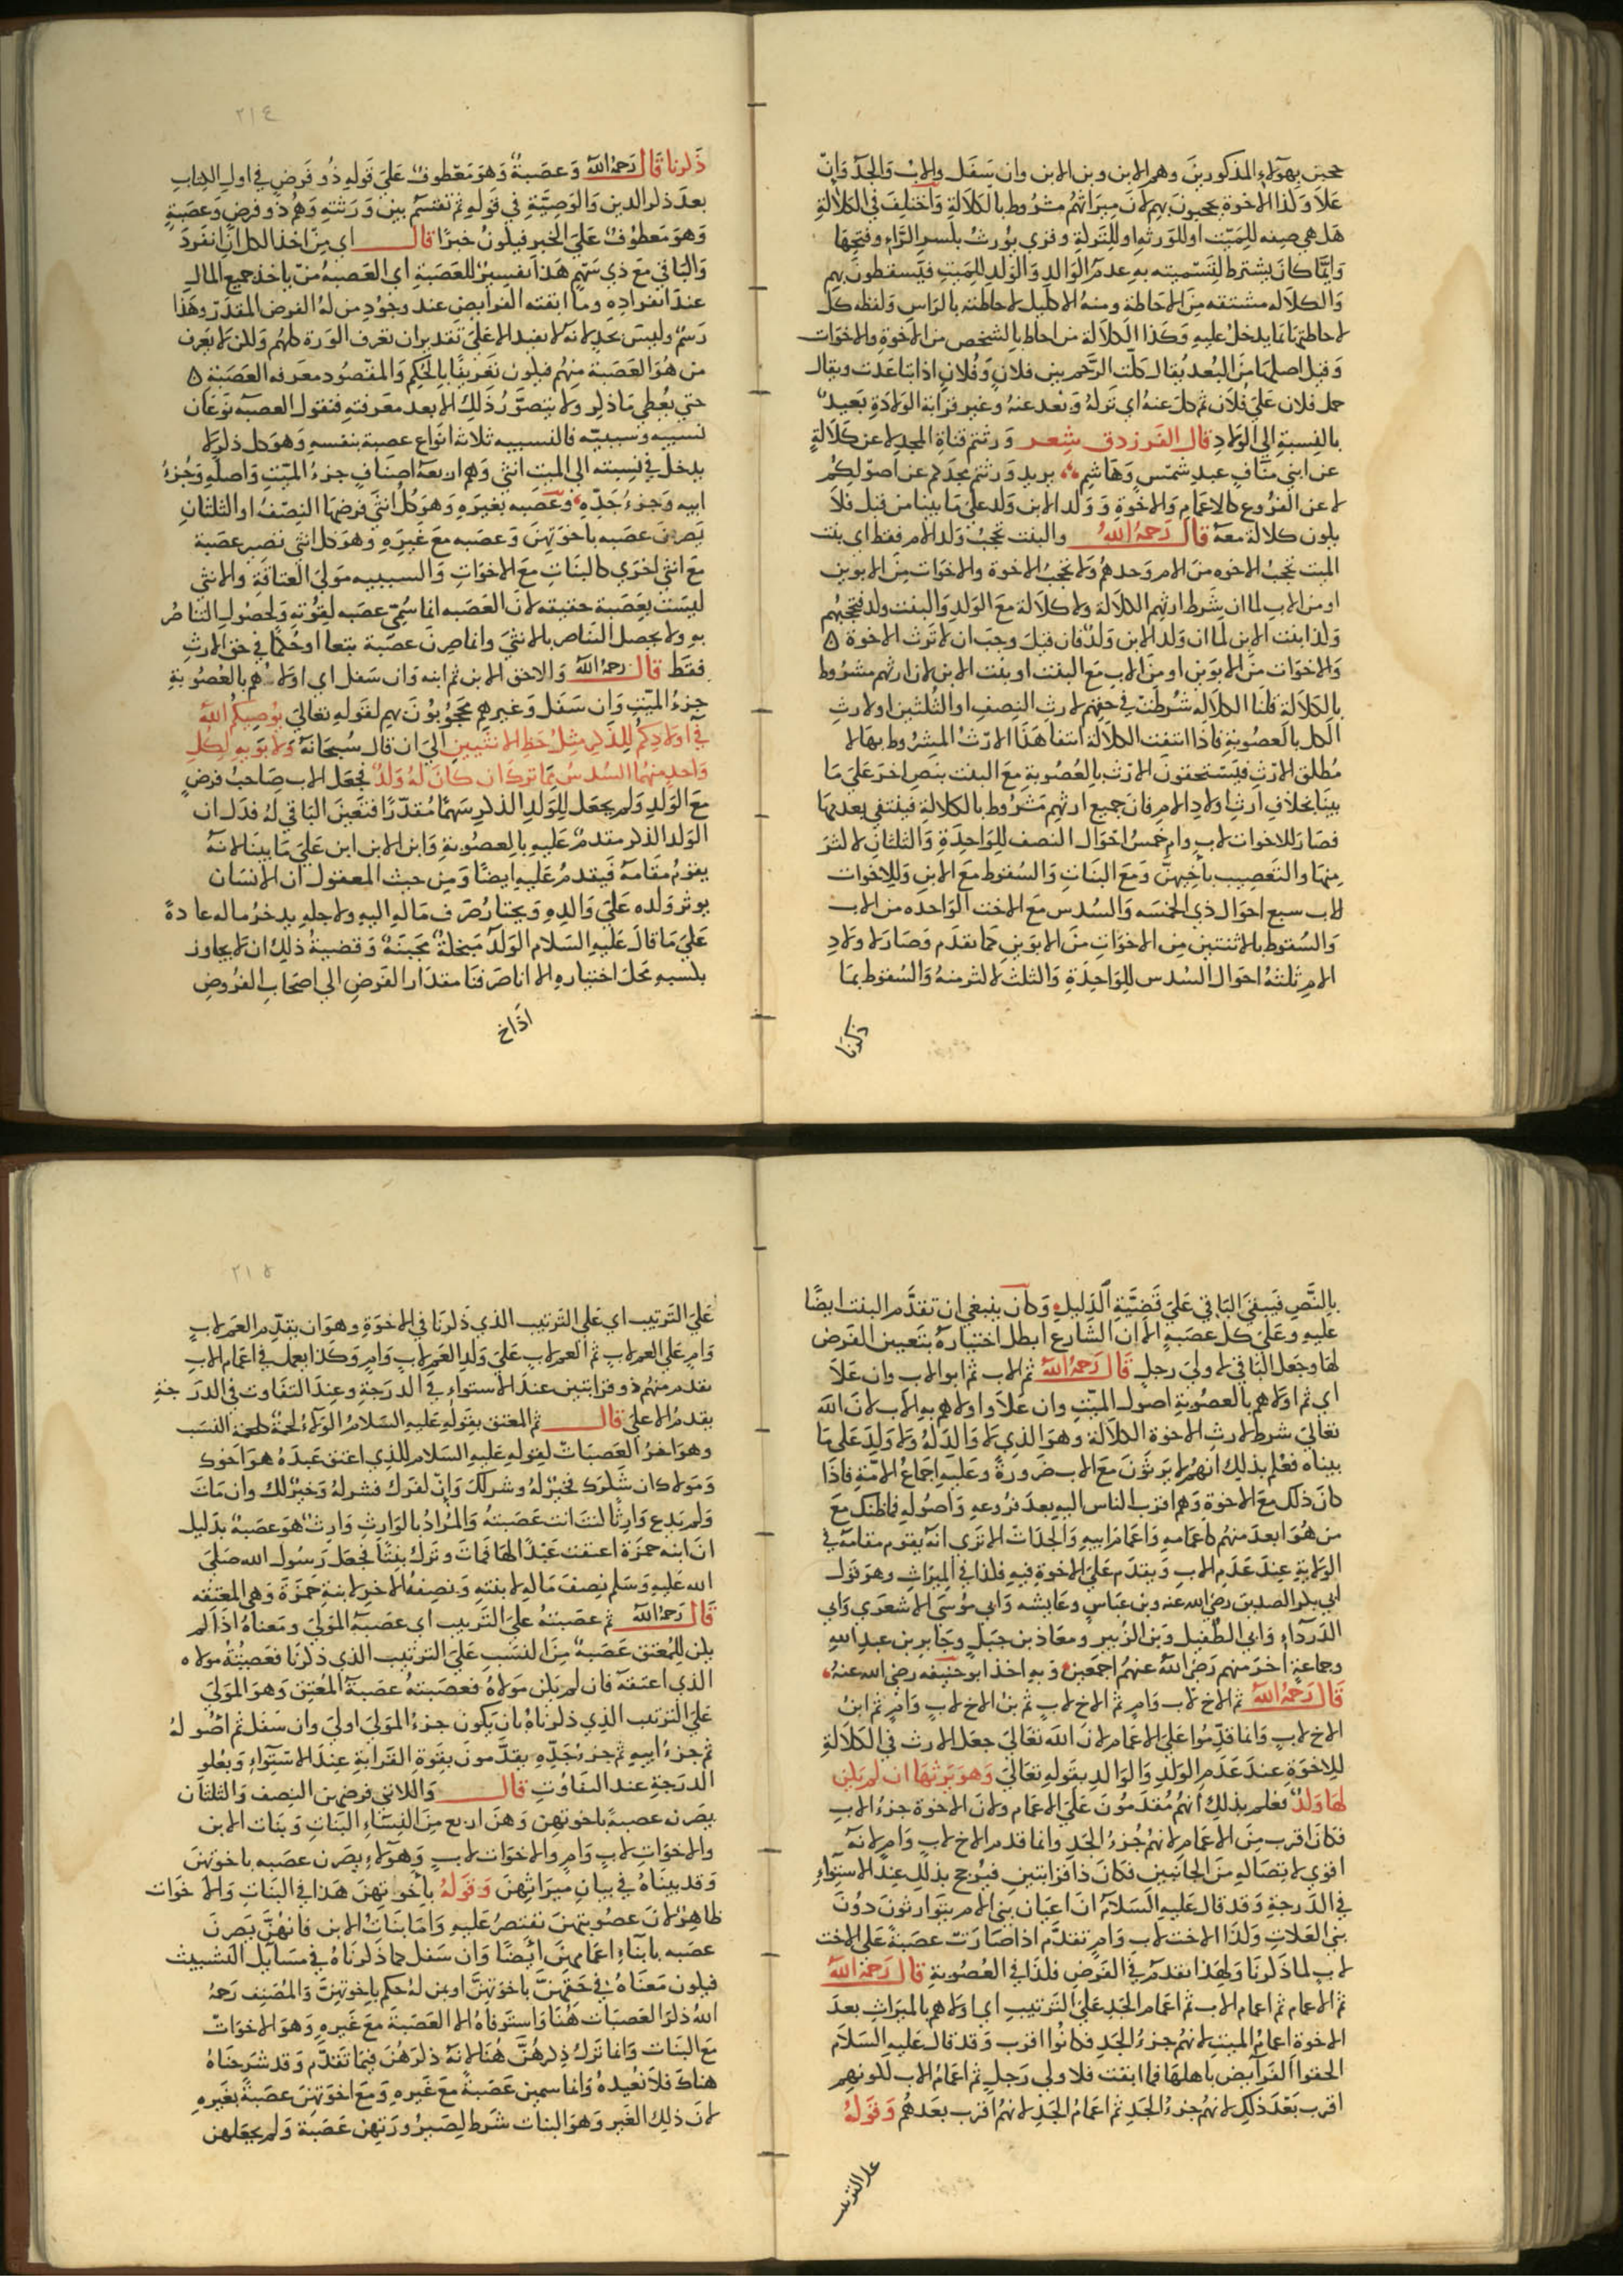 حجبن بهؤلاء المذكورين وهم الابن وبن الابن وان سفل والاب والجد وان
علا وكذا الاخوة يحجبون بهم لان ميراثهم مشروط بالكلالة واختلف في الكلالة
هل هي صفه للميت او للورثه او للتركة وقري يورث بكسر الراء وفتحها
وايما كان يشترط لتسميته به عدم الوالد والولد للميت فيسقطون بهم
والكلاله مشتقه من الاحاطة ومنه الاكليل لاحاطته بالراس ولفظه كل
لاحاطتها بما يدخل عليه وكذا الكلالة من احاط بالشخص من الاخوة والاخوات
وقيل اصلها من البعد يقال كلت الرحم بين فلان وفلان اذا تباعدت ويقال
حمل فلان علي فلان ثم كل عنه اي تركه وبعد عنه وغير قرابة الولادة بعيد
بالنسبة الي الولاد قال الفرزدق شعر ورثتم قناة المجد لا عن كلالة
عن ابني مناف عبد شمس وهاشم يريد ورثتم مجدكم عن اصولكم
لا عن الفروع كالاعمام والاخوة وولد الابن ولد علي ما بينا من قبل فلا
يكون كلالة معه قال رحمه الله والبنت تحجب ولد الام فقط اي بنت
الميت تحجب الاخوه من الام وحدهم ولا تحجب الاخوة والاخوات من الابوين
او من الاب لما ان شرط ارثهم الكلالة ولا كلالة مع الولد والبنت ولد فتحجبهم
وكذا بنت الابن لما ان ولد الابن ولد فان قيل وجب ان لا ترث الاخوة ٥
والاخوات من الابوين او من الاب مع البنت او بنت الابن لان ارثهم مشروط
بالكلالة قلنا الكلالة شرطت في حقهم لارث النصف او الثلثين او لارث
الكل بالعصوبة فاذا انتفت الكلالة انتفا هذا الارث المشروط بها لا
مطلق الارث فيستحقون الارث بالعصوبة مع البنت بنص اخر علي ما
بينا بخلاف ارث اولاد الام فان جميع ارثهم مشروط بالكلالة فينتفي بعدمها
فصار للاخوات لاب وام خمس احوال النصف للواحدة والثلثان لاكثر
منها والتعصيب باخيهن ومع البنات والسقوط مع الابن وللاخوات
لاب سبع احوال ذي الخمسه والسدس مع الاخت الواحده من الاب
والسقوط بالاثنتين من الاخوات من الابوين كما تقدم وصار لاولاد
الام ثلثه احوال السدس للواحدة والثلث لاكثر منه والسقوط بما
ذكرنا
٢١٤
ذكرنا قال رحمه الله وعصبة وهو معطوف علي قوله ذو فرض في اول الكتاب
بعد ذكر الدين والوصية في قوله ثم تقسم بين ورثته وهم ذو فرض وعصبة
وهو معطوف علي الخبر فيكون خبرا قال اي من اخذ الكل ان انفرد
والباقي مع ذي سهم هذا تفسير للعصبة اي العصبة من ياخذ جميع المال
عند انفراده وما ابقته الفرايض عند وجود من له الفرض المقدر وهذا
رسم وليس بحد لانه لا يفيد الا علي تقدير ان تعرف الورثة كلهم ولكن لا يعرف
من هو العصبة منهم فيكون تعريفا بالحكم والمقصود معرفه العصبة ٥
حتي يعطي ما ذكر ولا يتصور ذلك الا بعد معرفته فنقول العصبه نوعان
نسبيه وسببيه فالنسبيه ثلاثه انواع عصبة بنفسه وهو كل ذكر لا
يدخل في نسبته الي الميت انثي وهم اربعه اصناف جزء الميت واصله وجزء
ابيه وجزء جده وعصبه بغيره وهو كل انثي فرضها النصف او الثلثان
يصرن عصبه باخوتهن وعصبه مع غيره وهو كل انثي تصير عصبة
مع انثي اخري كالبنات مع الاخوات والسببيه مولي العتاقة والانثي
ليست بعصبة حقيقه لان العصبه انما سمي عصبه لقوته ولحصول التناصر
به ولا يحصل التناصر بالانثي وانما صرن عصبة تبعا او حكما في حق الارث
فقط قال رحمه الله والاحق الابن ثم ابنه وان سفل اي اولاهم بالعصوبة
جزء الميت وان سفل وغيرهم محجوبون بهم لقوله تعالي يوصيكم الله
في اولادكم للذكر مثل حظ الانثيين الي ان قال سبحانه ولابويه لكل
واحد منهما السدس مما ترك ان كان له ولد فجعل الاب صاحب فرض
مع الولد ولم يجعل للولد الذكر سهما مقدرا فتعين الباقي له فدل ان
الولد الذكر مقدم عليه بالعصوبة وابن الابن ابن علي ما بينا لانه
يقوم مقامه فيقدم عليه ايضا ومن حيث المعقول ان الانسان
يوثر ولده علي والده ويختار صرف ماله اليه ولاجله يدخر ماله عادة
علي ما قال عليه السلام الولد مبخلة مجبنة وقضية ذلك ان لا يجاوز
بكسبه محل اختياره الا انا صرفنا مقدار الفرض الي اصحاب الفروض
اذا خ
بالنص فيبقي الباقي علي قضية الدليل وكان ينبغي ان تقدم البنت ايضا
عليه وعلي كل عصبة الا ان الشارع ابطل اختياره بتعيين الفرض
لها وجعل الباقي لاولي رجل قال رحمه الله ثم الاب ثم ابو الاب وان علا
اي ثم اولاهم بالعصوبة اصول الميت وان علاوا واولاهم به الاب لان الله
تعالي شرط لارث الاخوة الكلالة وهو الذي لا والد له ولا ولد علي ما
بيناه فعلم بذلك انهم لا يرثون مع الاب ضرورة وعليه اجماع الامة فاذا
كان ذلك مع الاخوة وهم اقرب الناس اليه بعد فروعه واصوله فما ظنك مع
من هو ابعد منهم كاعمامه واعمام ابيه والجد كالاب الا تري انه يقوم مقامه في
الولاية عند عدم الاب ويقدم علي الاخوة فيه فكذا في الميراث وهو قول
ابي بكر الصديق رضي الله عنه وبن عباس وعايشه وابي موسي الاشعري وابي
الدرداء وابي الطفيل وبن الزبير ومعاذ بن جبل وجابر بن عبد الله
وجماعة اخر منهم رضي الله عنهم اجمعين وبه اخذ ابو حنيفه رضي الله عنه
قال رحمه الله ثم الاخ لاب وام ثم الاخ لاب ثم بن الاخ لاب وام ثم ابن
الاخ لاب وانما قدموا علي الاعمام لان الله تعالي جعل الارث في الكلالة
للاخوة عند عدم الولد والوالد بقوله تعالي وهو يرثها ان لم يكن
لها ولد فعلم بذلك انهم مقدمون علي الاعمام ولان الاخوة جزء الاب
فكان اقرب من الاعمام لانهم جزء الجد وانما قدم الاخ لاب وام لانه
اقوي لاتصاله من الجانبين فكان ذا قرابتين فيرجح بذلك عند الاستواء
في الدرجة وقد قال عليه السلام ان اعيان بني الام يتوارثون دون
بني العلات وكذا الاخت لاب وام تقدم اذا صارت عصبة علي الاخت
لاب لما ذكرنا ولهذا تقدم في الفرض فكذا في العصوبة قال رحمه الله
ثم الاعمام ثم اعمام الاب ثم اعمام الجد علي الترتيب اي اولاهم بالميراث بعد
الاخوة اعمام الميت لانهم جزء الجد فكانوا اقرب وقد قال عليه السلام
الحقوا الفرايض باهلها فما ابقت فلاولي رجل ثم اعمام الاب لكونهم
اقرب بعد ذلك لانهم جزء الجد ثم اعمام الجد لانهم اقرب بعدهم وقوله
علي الترتيب
٢١٥
علي الترتيب اي علي الترتيب الذي ذكرنا في الاخوة وهو ان يقدم العم لاب
وام علي العم لاب ثم العم لاب علي ولد العم لاب وام وكذا يعمل في اعمام الاب
يقدم منهم ذو قرابتين عند الاستواء في الدرجة وعند التفاوت في الدرجة
يقدم الاعلي قال ثم المعتق بقوله عليه السلام الولاء لحمة كلحمة النسب
وهو اخر العصبات لقوله عليه السلام للذي اعتق عبده هو اخوك
ومولاك ان شكرك فخير له وشر لك وان كفرك فشر له وخير لك وان مات
ولم يدع وارثا كنت انت عصبته والمراد بالوارث وارث هو عصبة بدليل
ان ابنه حمزة اعتقت عبدا لها فمات وترك بنتا فجعل رسول الله صلي
الله عليه وسلم نصف ماله لابنته ونصفه الاخر لابنة حمزة وهي المعتقه
قال رحمه الله ثم عصبته علي الترتيب اي عصبة المولي ومعناه اذا لم
يكن للمعتق عصبة من النسب علي الترتيب الذي ذكرنا فعصبته مولاه
الذي اعتقه فان لم يكن مولاه فعصبته عصبة المعتق وهو المولي
علي الترتيب الذي ذكرناه بان يكون جزء المولي اولي وان سفل ثم اصوله
ثم جزء ابيه ثم جزء جده يقدمون بقوة القرابة عند الاستواء وبعلو
الدرجة عند التفاوت قال واللاتي فرضهن النصف والثلثان
يصرن عصبة باخوتهن وهن اربع من النساء البنات وبنات الابن
والاخوات لاب وام والاخوات لاب وهؤلاء يصرن عصبه باخوتهن
وقد بيناه في بيان ميراثهن وقوله باخوتهن هذا في البنات والاخوات
ظاهر لان عصوبتهن تقتصر عليه واما بنات الابن فانهن يصرن
عصبه بابناء اعمامهن ايضا وان سفل كما ذكرناه في مسايل التشبيب
فيكون معناه في حقهن باخوتهن او بن له حكم باخوتهن والمصنف رحمه
الله ذكر العصبات هنا واستوفاه الا العصبة مع غيره وهو الاخوات
مع البنات وانما ترك ذكرهن هنا لانه ذكرهن فيما تقدم وقد شرحناه
هناك فلا نعيده وانما سمين عصبة مع غيره ومع اخوتهن عصبة بغيره
لان ذلك الغير وهو البنات شرط لصيرورتهن عصبة ولم يجعلهن